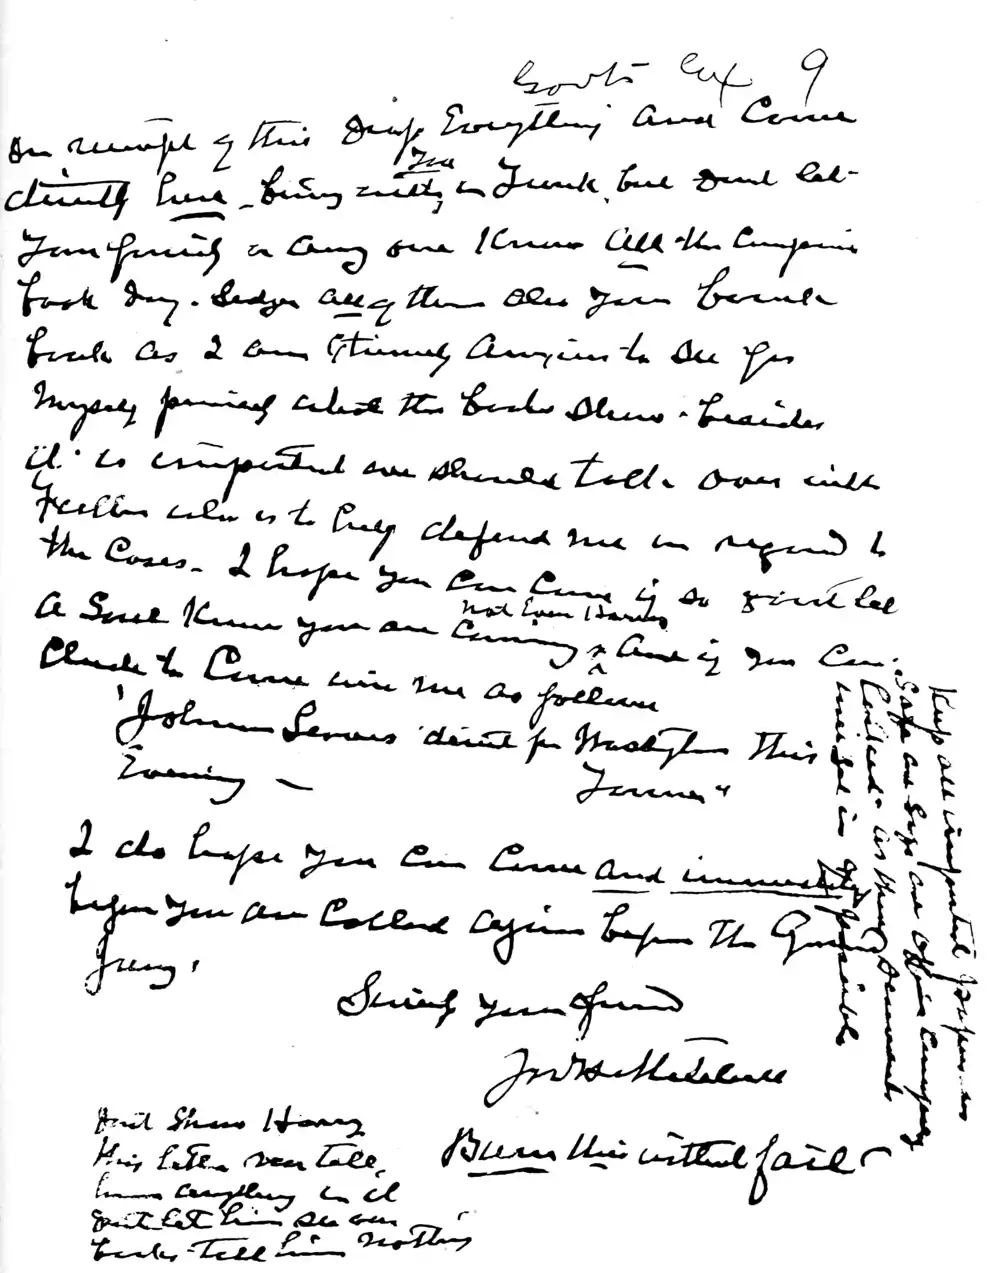 Govts Ex 9
On receipt of this Drop Everything and Come
directly here - bring with you in Trunk, but dont let
Your family or any one Know All the Company
book Day - Ledger All of them also your bank
book as I am extremely Anxious to See for
Myself precisely what the books Show - besides
it is important we should talk over with
who is to help defend me in regard to
the Cases - I hope you can Come if so dont let
a Soul Know you are Coming Not Even Harry And if you Con-
clude to Come wire me as follows
"Johnson leaves direct for Washington this
Evening - Tanner"
I do hope you can Come and immediately
before you are Called again before the Grand
Jury.
Sincerely Your friend
Jno H. Mitchell
Burn this without fail
Dont Show Harry
this letter nor tell
him anything in it
Dont let him see our
books - tell him Nothing
Keep all important papers in
Safe or Office Company